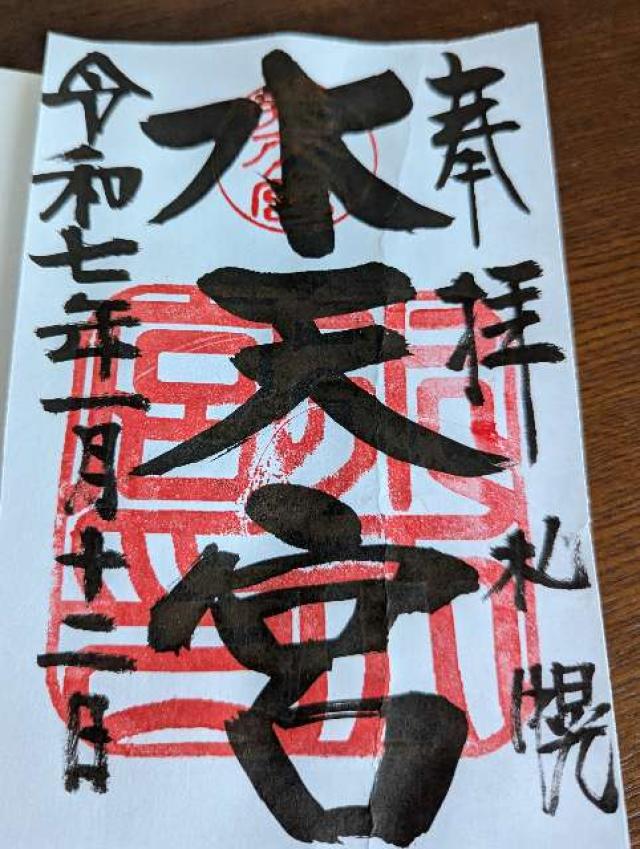 奉拝 札幌
水天宮
令和七年一月十二日